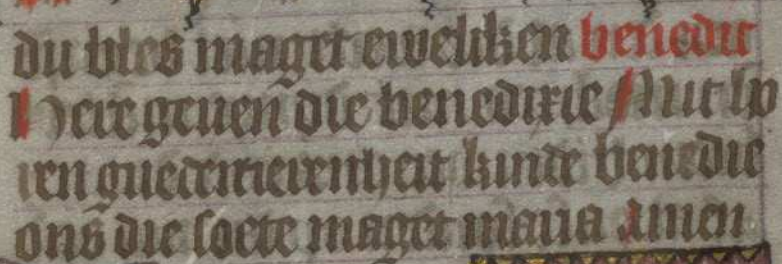 du bles maget eweliken benedit
Here geuen die benedixie Mit hy
ren guedertierenheit kinde benedie
ons die soete maget maria amen